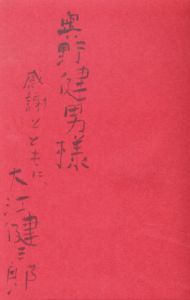 奥野健男様
感謝とともに、
大江健三郎